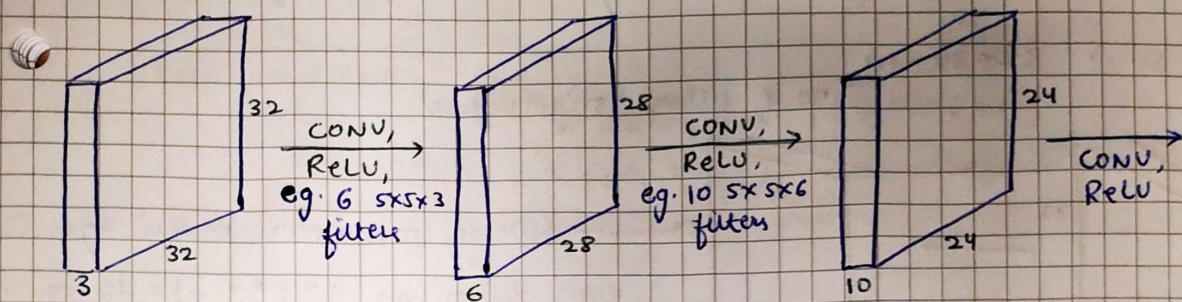 32
32
3
CONV,
ReLU,
eg. 6 5x5x3
filters
28
28
6
CONV,
ReLU,
eg. 10 5x5x6
filters
24
24
10
CONV,
ReLU